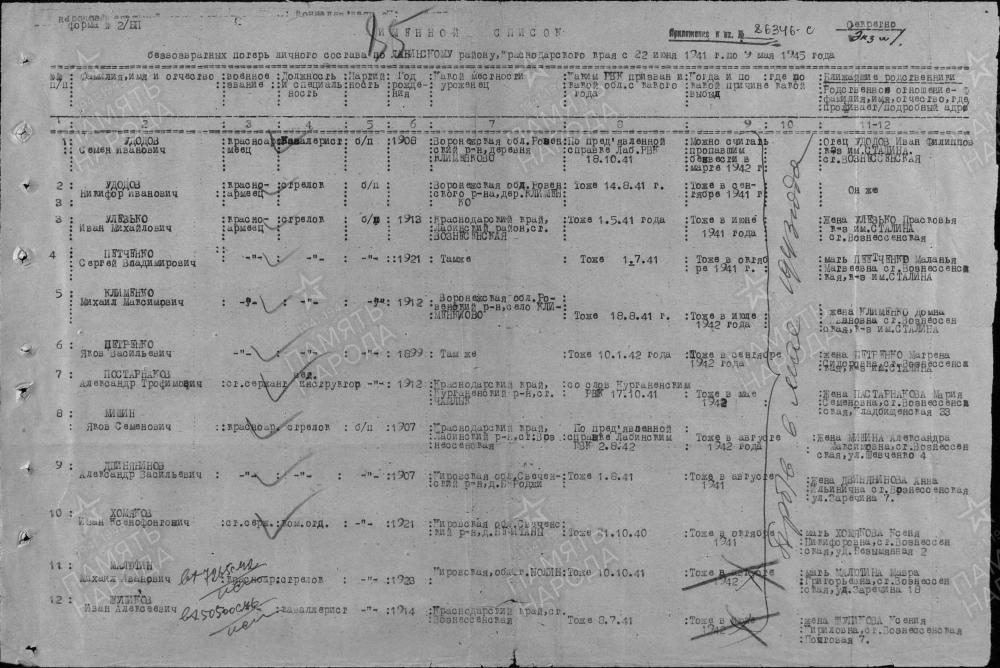 форма № 2/БП
86346-с
Приложение к вх. №
Секретно
Экз №1.
ИМЕННОЙ СПИСОК
безвозвратных потерь личного состава по ЛАБИНСКОМУ району, Краснодарского края с 22 июня 1941 г. по 9 мая 1945 года
№№ п/п : Фамилия, имя и отчество : военное звание : Должность и специальность : Партийность : Год рождения : Какой местности уроженец : Каким РВК призван и какой обл. с какого года : Когда и по какой причине выбыл : где по какой : Ближайшие родственники
Родственное отношение-фамилия, имя, отчество, где проживает/подробный адре
1 2 3 4 5 6 7 8 9 10 11-12
1 УДОДОВ Семен Иванович : Красноармеец : Кавалерист : б/п : 1908 : Воронежская обл. Ровен ский р-н, деревня КЛИМЕНКОВО : По пред'явленной справке Лаб. РВК 18.10.41 : Можно считать пропавшим безвести в марте 1942 г. : Отец УДОДОВ Иван Филиппов к-з им. СТАЛИНА, ст. ВОЗНЕССЕНСКАЯ
2 УДОДОВ Никифор Иванович : Красно-армеец : стрелок : б/п : Воронежская обл. Ровен ского р-на, дер. КЛИМЕН КО : Тоже 14.8.41 г. : Тоже в сен-тябре 1941 г. : Он же
3 УЛЕЗЬКО Иван Михайлович : Красно-армеец : стрелок : б/п : 1913 : Краснодарский край, Лабинский район, ст. ВОЗНЕСЕНСКАЯ : Тоже 1.5.41 года : Тоже в июне 1941 года : Жена УЛЕЗЬКО Прасковья к-з им. СТАЛИНА ст. Вознессенская
4 ПЕТЧЕНКО Сергей Владимирович : -"- : -"- : -"- : 1921 : Тамже : Тоже 1.7.41 : Тоже в октяб ре 1941 г. : мать Маланья Матвеевна ст. Вознессенск ая, к-з им. СТАЛИНА
5 КЛИМЕНКО Михаил Максимович : -"- : -"- : -"- : 1912 : Воронежская обл. Ро-венский р-н, село КЛИ-МЕНКОВО : Тоже 18.8.41 г. : Тоже в июле 1942 года : жена КЛИМЕНКО Домна Ивановна ст. Вознессен ская, к-з им. СТАЛИНА
6 ПЕТРЕНКО Яков Васильевич : -"- : -"- : -"- : 1899 : Там же : Тоже 10.1.42 года : Тоже в сентябре 1942 года : жена ПЕТРЕНКО Матрена Сидоровна, ст. Вознессенск ая, к-з им. СТАЛИНА
7 ПОСТАРНАКОВ Александр Трофимович : ст. сержант : вел. инструктор : -"- : 1912 : Краснодарский край, Курганенский р-н, ст. : со слов Курганенским РВК 17.10.41 : Тоже в мае 1942 : Жена ПАСТАРНАКОВА Мария Семеновна, ст. Вознессен ская, Кладбищенская 33
8 МИШИН Яков Семенович : красноар. : стрелок : б/п : 1907 : Краснодарский край, Лабинский р-н, ст. Воз нессенская : По пред'явленной справке Лабинским РВК 2.8.42 : Тоже в августе 1942 года : Жена МИШИНА Александра Максимовна, ст. Вознессен ская, ул. Шевченко 4
9 ДВИНЯНИНОВ Александр Васильевич : -"- : -"- : -"- : 1907 : Кировская обл. Свечен-ский р-н, : Тоже 1.8.41 : Тоже в августе 1941 : жена ДВИНЯНИНОВА Анна Ильинична ст. Вознессенская ул. Заречина 7.
10 ХОМЯКОВ Иван Ксенофонтович : ст. серж. : ком. отд. : -"- : 1921 : Кировская обл. Свеченс кий р-н, : Тоже 21.10.40 : Тоже в октябре 1941 : мать ХОМЯКОВА Ксения Никифоровна, ст. Вознессен ская, ул. Безымянная 2
11 МАЛЮТИН Михаил Иванович : красноар : стрелок : -"- : 1923 : Кировская, област. : Тоже 10.10.41 : Тоже в августе 1942 : мать МАЛЮТИНА Мавра Григорьевна, ст. Вознессен ская, ул. Заречина 18
12 Иван Алексеевич : кавалерист : -"- : 1914 : Краснодарский край, ст. Вознессенская : Тоже 8.7.41 : Тоже в мае 1942 : жена Ксения Кириловна, ст. Вознессенская Почтовая 7.
ПАМЯТЬ НАРОДА